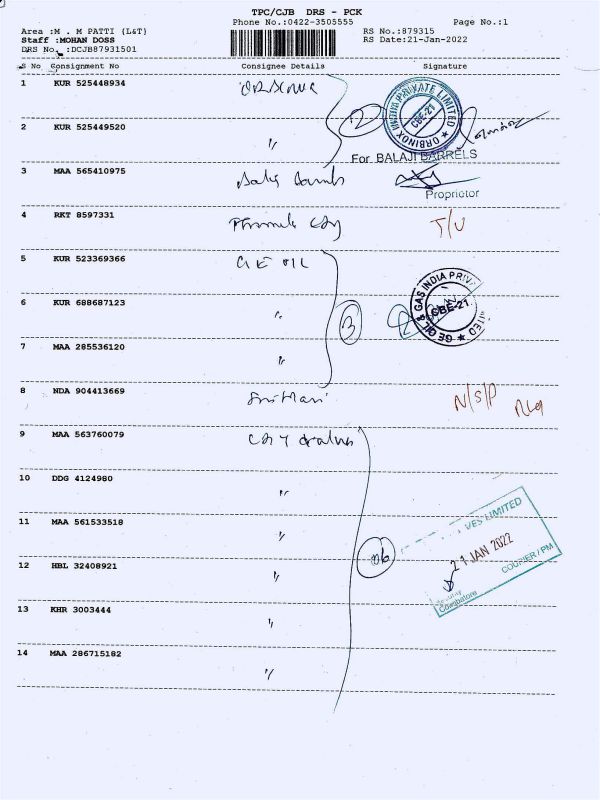 TPC/CJB DRS - PCK
Phone No.:0422-3505555 Page No.:1
Area :M . M PATTI (L&T) RS No.:879315
Staff :MOHAN DOSS RS Date:21-Jan-2022
DRS No. :DCJB87931501
S No Consignment No Consignee Details Signature
1 KUR 525448934
ORBINOX INDIA PRIVATE LIMITED
CBE-21
2
2 KUR 525449520 "
For BALAJI BARRELS
3 MAA 565410975
Proprietor
4 RKT 8597331 T/U
5 KUR 523369366 GE OIL
GE OIL & GAS INDIA PRIV ITED
CBE-21
3
6 KUR 688687123 "
7 MAA 285536120 "
8 NDA 904413669 N/S/P
9 MAA 563760079
10 DDG 4124980 "
VES LIMITED
11 MAA 561533518 "
21 JAN 2022
06
COURIER / PM
12 HBL 32408921 "
Coimbatore
13 KHR 3003444 "
14 MAA 286715182 "